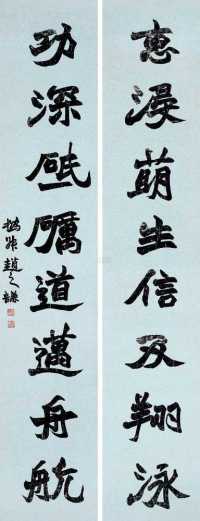 惠浸萌生信及翔泳
功深砥礪道邁舟航
撝叔趙之謙